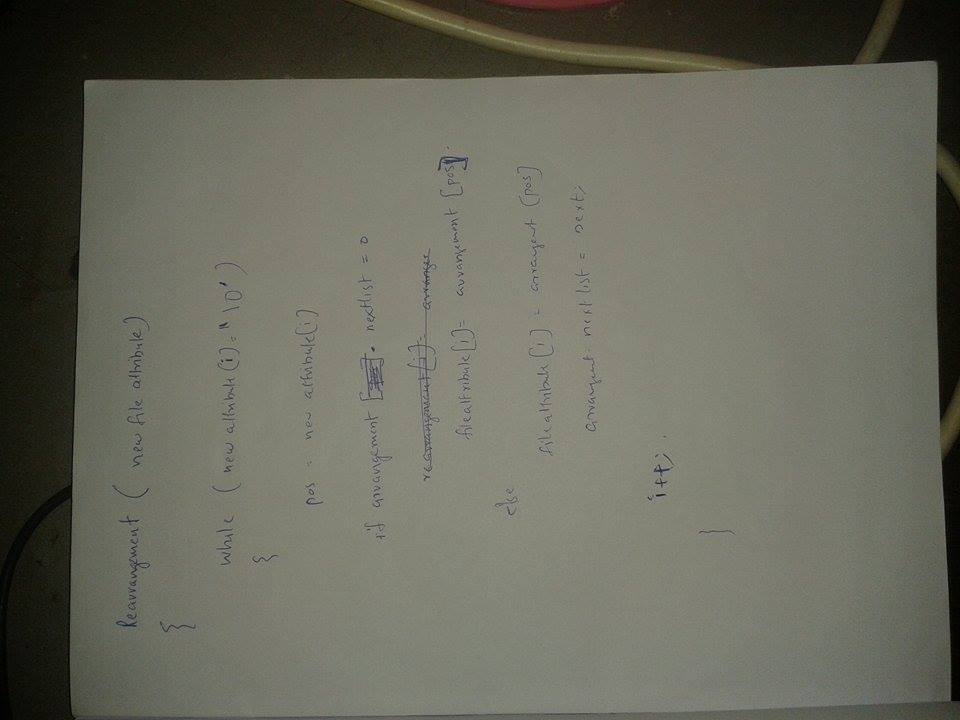 Rearrangement ( new file attribute)
{
while ( new attribute(i) = "\0' )
{
pos = new attribute[i]
if arrangement [ ]. nextlist = 0
rearrangement[i] = arrange
fileattribute[i] = arrangement [pos].
else
fileattribute [i] = arrangent [pos]
arrangent. next list = next;
i++;
}